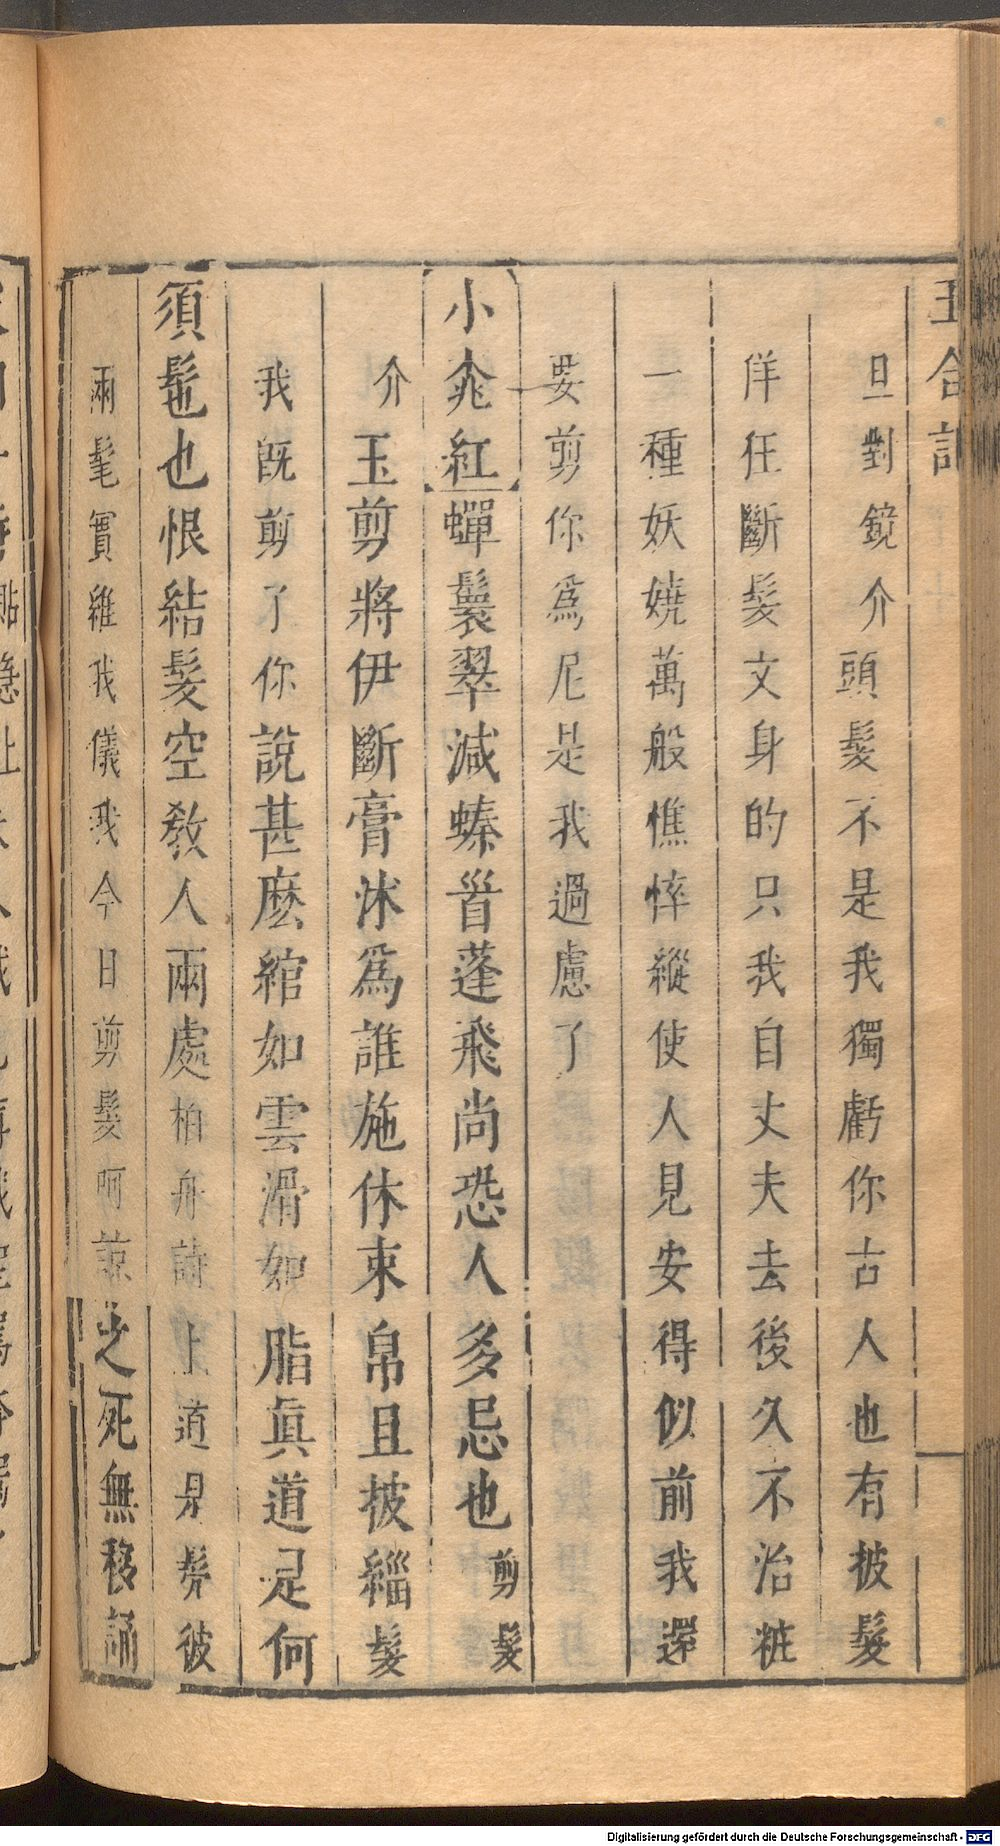 玉合記
旦對鏡介頭髮不是我獨虧你古人也有披髮
佯狂斷髮文身的只我自丈夫去後久不治粧
一種妖嬈萬般憔悴縱使人見安得似前我還
要剪你爲尼是我過慮了
小桃紅蟬鬟翠減螓首蓬飛尚恐人多忌也剪髮
介玉剪將伊斷膏沐爲誰施休束帛且披緇髮
我旣剪了你說甚麽綰如雲滑如脂眞道是何
須髢也恨結髮空敎人兩處柏舟詩上道是髧彼
兩髦實維我儀我今日剪髮呵諒之死無移誦
Digitalisierung gefördert durch die Deutsche Forschungsgemeinschaft - DFG